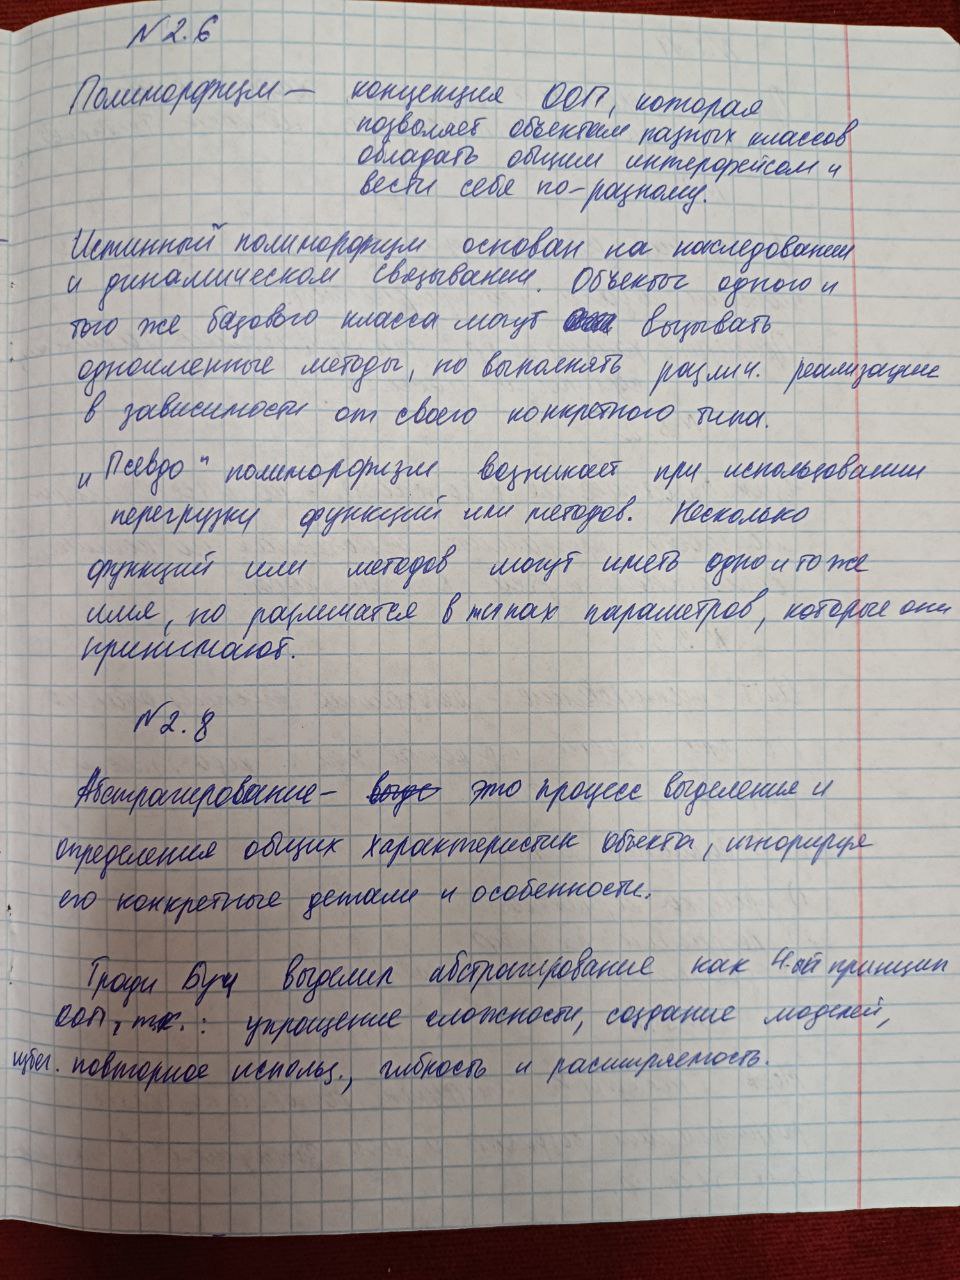 №2.6
Полиморфизм — концепция ООП, которая
позволяет объектам разных классов
обладать общим интерфейсом и
вести себя по-разному.
Истинный полиморфизм основан на наследовании
и динамическом связывании. Объекты одного и
того же базового класса могут вызывать
одноименные методы, но выполнять различ. реализации
в зависимости от своего конкретного типа.
„Псевдо“ полиморфизм возникает при использовании
перегрузки функций или методов. Несколько
функций или методов могут иметь одно и то же
имя, но различатся в типах параметров, которые они
принимают.
№2.8
Абстрагирование – это процесс выделения и
определения общих характеристик объекта, игнорируя
его конкретные детали и особенности.
Гради Буч выделил абстрагирование как 4-ый принцип
ООП, т.к.: упрощение сложности, создание моделей,
избег. повторное использ., гибкость и расширяемость.